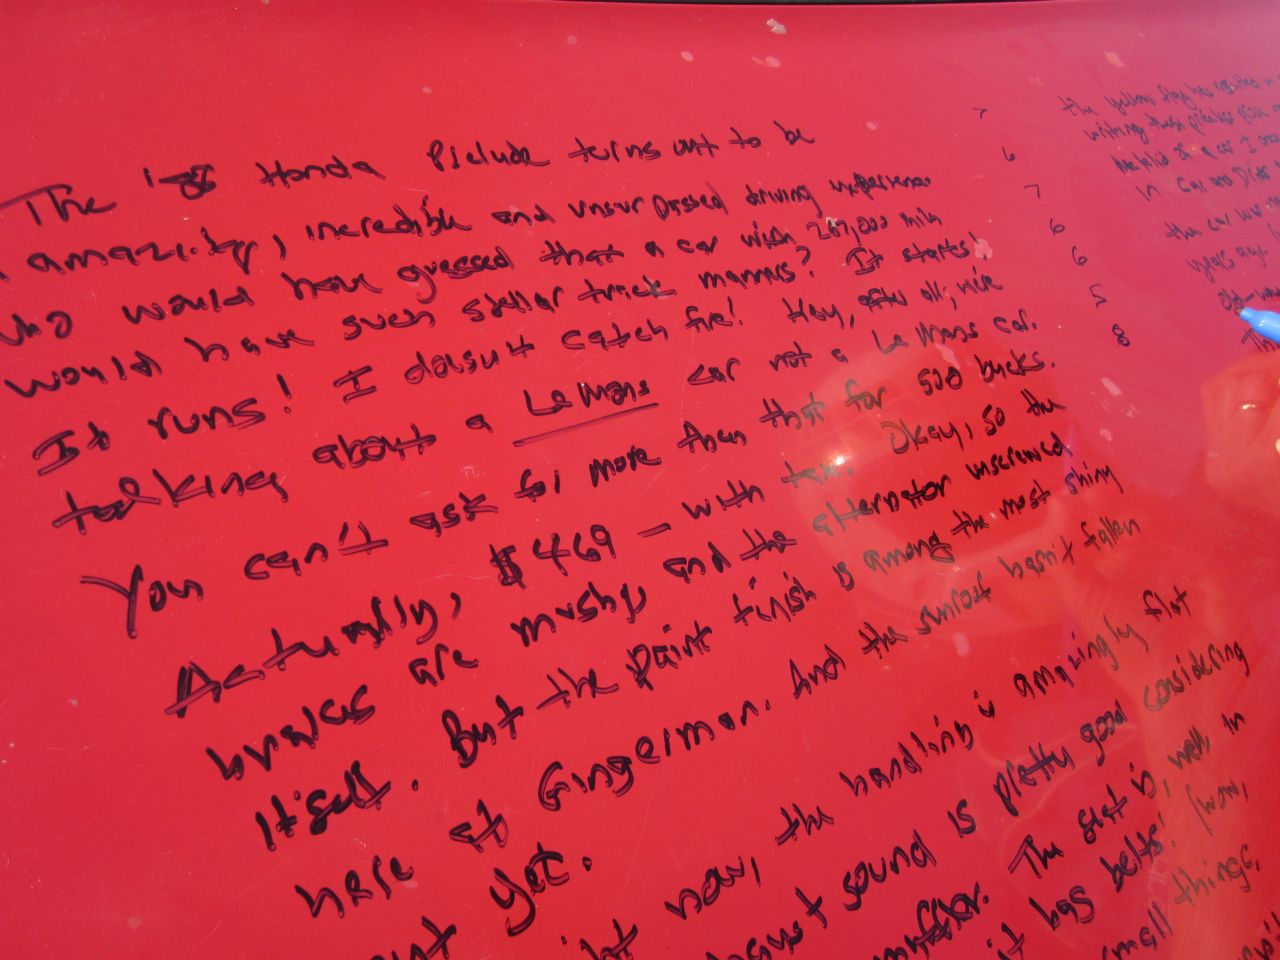 The '88 Honda Prelude turns out to be
amazing, incredible and unsurpassed driving experience
who would have guessed that a car with 267,000 miles
would have such stellar track manners? It starts!
It runs! I doesn't catch fire! Hey, after all, we're
talking about a LeMons car not a Le Mans car.
You can't ask for more than that for 500 bucks.
Actually, $469 - with tax. Okay, so the
brakes are mushy and the alternator unscrewed
itself. But the paint finish is among the most shiny
here at Gingerman. And the sunroof hasn't fallen
yet.
now, the handling is amazingly flat
sound is pretty good considering
The seat is, well, in
it has belts! (wow,
small things,
7
6
7
6
6
5
8
the yellow flag has resulted in
writing these priceless
of a car I
in Car and Driver
the car was
years ago.